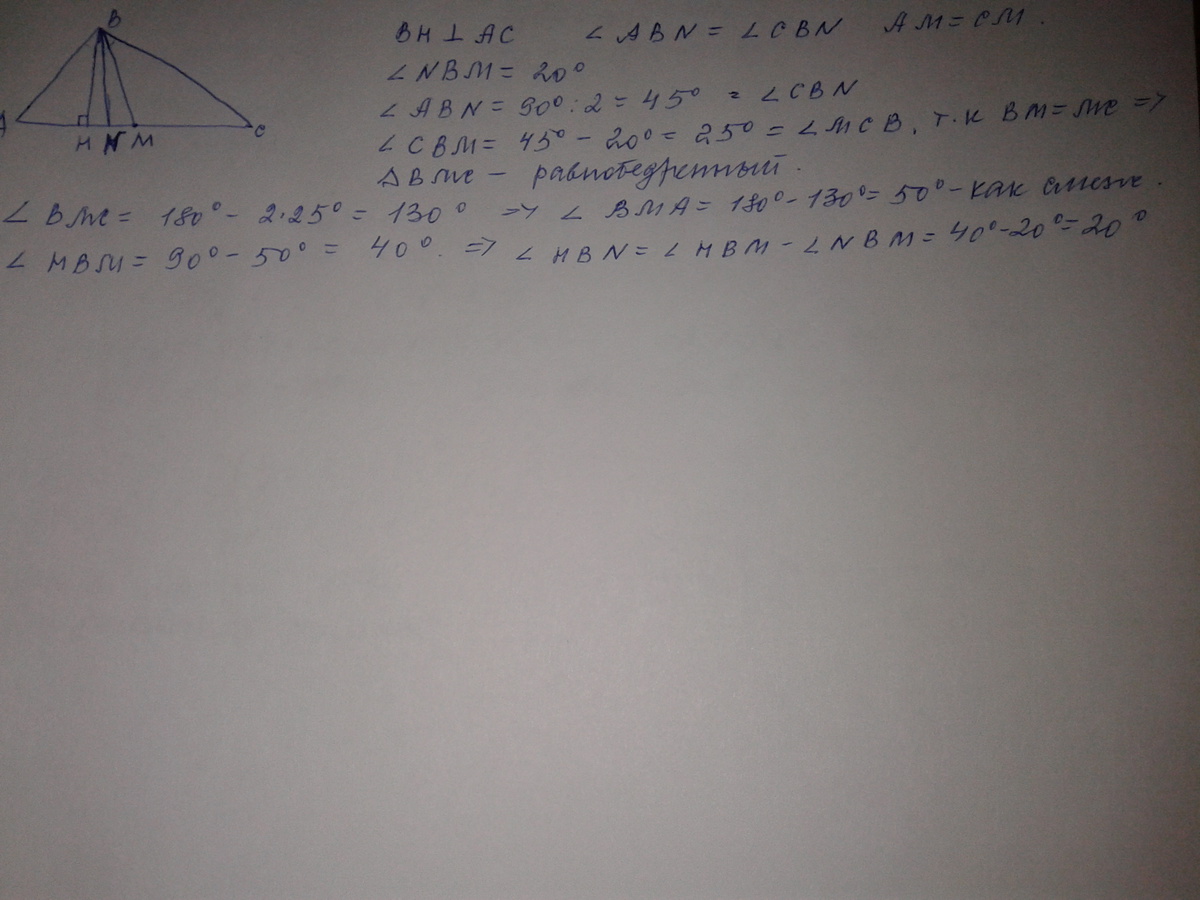 B
A H N M C
BH ⊥ AC ∠ ABN = ∠ CBN AM = CM.
∠ NBM = 20°
∠ ABN = 90° : 2 = 45° = ∠ CBN
∠ CBM = 45° - 20° = 25° = ∠ MCB, т.к BM = MC =>
Δ BMC - равнобедренный.
∠ BMC = 180° - 2·25° = 130° => ∠ BMA = 180° - 130° = 50° - как смежн.
∠ HBM = 90° - 50° = 40°. => ∠ HBN = ∠ HBM - ∠ NBM = 40° - 20° = 20°